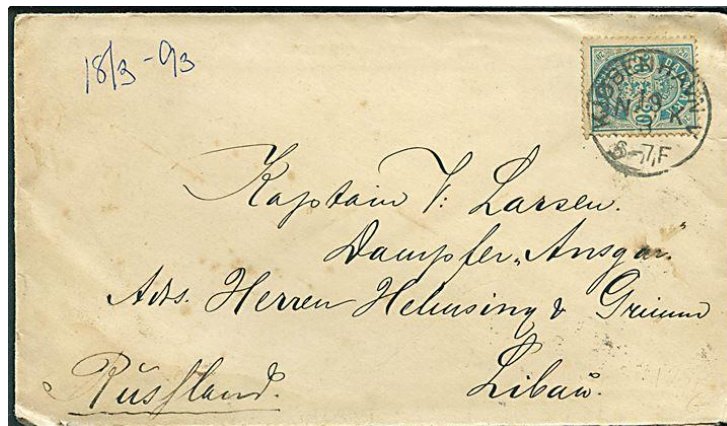 18/3 - 93
DANMARK
20
KJØBENHAVN
N 19 K
3
6-7,F
Kaptain V: Larsen.
Dampfer „Ansgar."
Ads. Herren Helmsing & Grimm
Libau.
Russland.